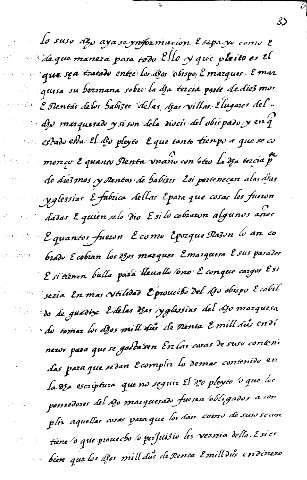 lo suso dho aya ynformacion E sepa ya como E
de que manera pasa todo Ello y que pleito es el
que sea tratado entre los dhos obispo E marques. E mar
quesa su hermana sobre la dha tercia parte de diezmos
E Rentas de los habizes de las dhas villas E lugares del
dho marquesado y si son de la diocis del obispado, y en q
estado esta El dho pleyto E que tanto tiempo a que se co
menço E quanto Renta un año con otro la dha tercia pe
de diezmos y Rentas de habizes E si pertenecen a las dhas
yglesias E fabrica dellas E para que cosas les fueron
dadas E quien se lo dio E si lo cobraron algunos años
E quantos fueron E como E por que Razon lo an co
brado E cobran los dhos marques E marquesa E sus pasados
E si tienen bulla para llevallo o no E con que cargos E si
seria En mas utilidad E provecho del dho obispo E cobil
do de guadix E de las dhas yglesias del dho marquesa
do tomar los dhos mill dus de Renta E mill dus en di
neros para que se gastasen En las cosas de suso conteni
das para que sedan E complir lo demas contenido en
la dha escriptura que no seguir El dho pleyto o que los
poseedores del dho marquesado fuesen obligados a con
plir aquellas cosas para que los dan como de suso se con
tiene o que provecho o perjuizio les vernia dello. E si es
bien que los dhos mill dus de Renta E mill dus en dinero